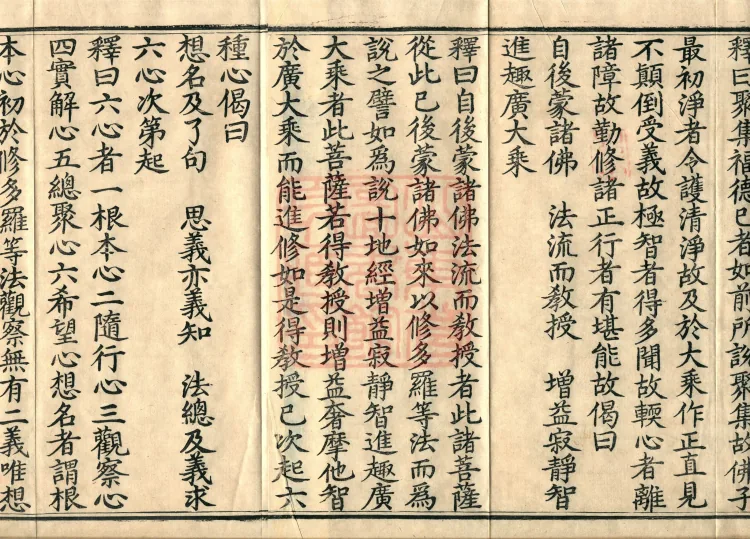 釋曰聚集福德已者如前所說聚集故佛子
最初淨者令護清淨故及於大乘作正直見
不顛倒受義故極智者得多聞故輭心者離
諸障故勤修諸正行者有堪能故偈曰
自後蒙諸佛 法流而教授 增益寂靜智
進趣廣大乘
釋曰自後蒙諸佛法流而教授者此諸菩薩
從此已後蒙諸佛如來以修多羅等法而爲
說之譬如爲說十地經增益寂靜智進趣廣
大乘者此菩薩若得教授則增益奢摩他智
於廣大乘而能進修如是得教授已次起六
種心偈曰
想名及了句 思義亦義知 法總及義求
六心次第起
釋曰六心者一根本心二隨行心三觀察心
四實解心五總聚心六希望心想名者謂根
本心初於修多羅等法觀察無有二義唯想